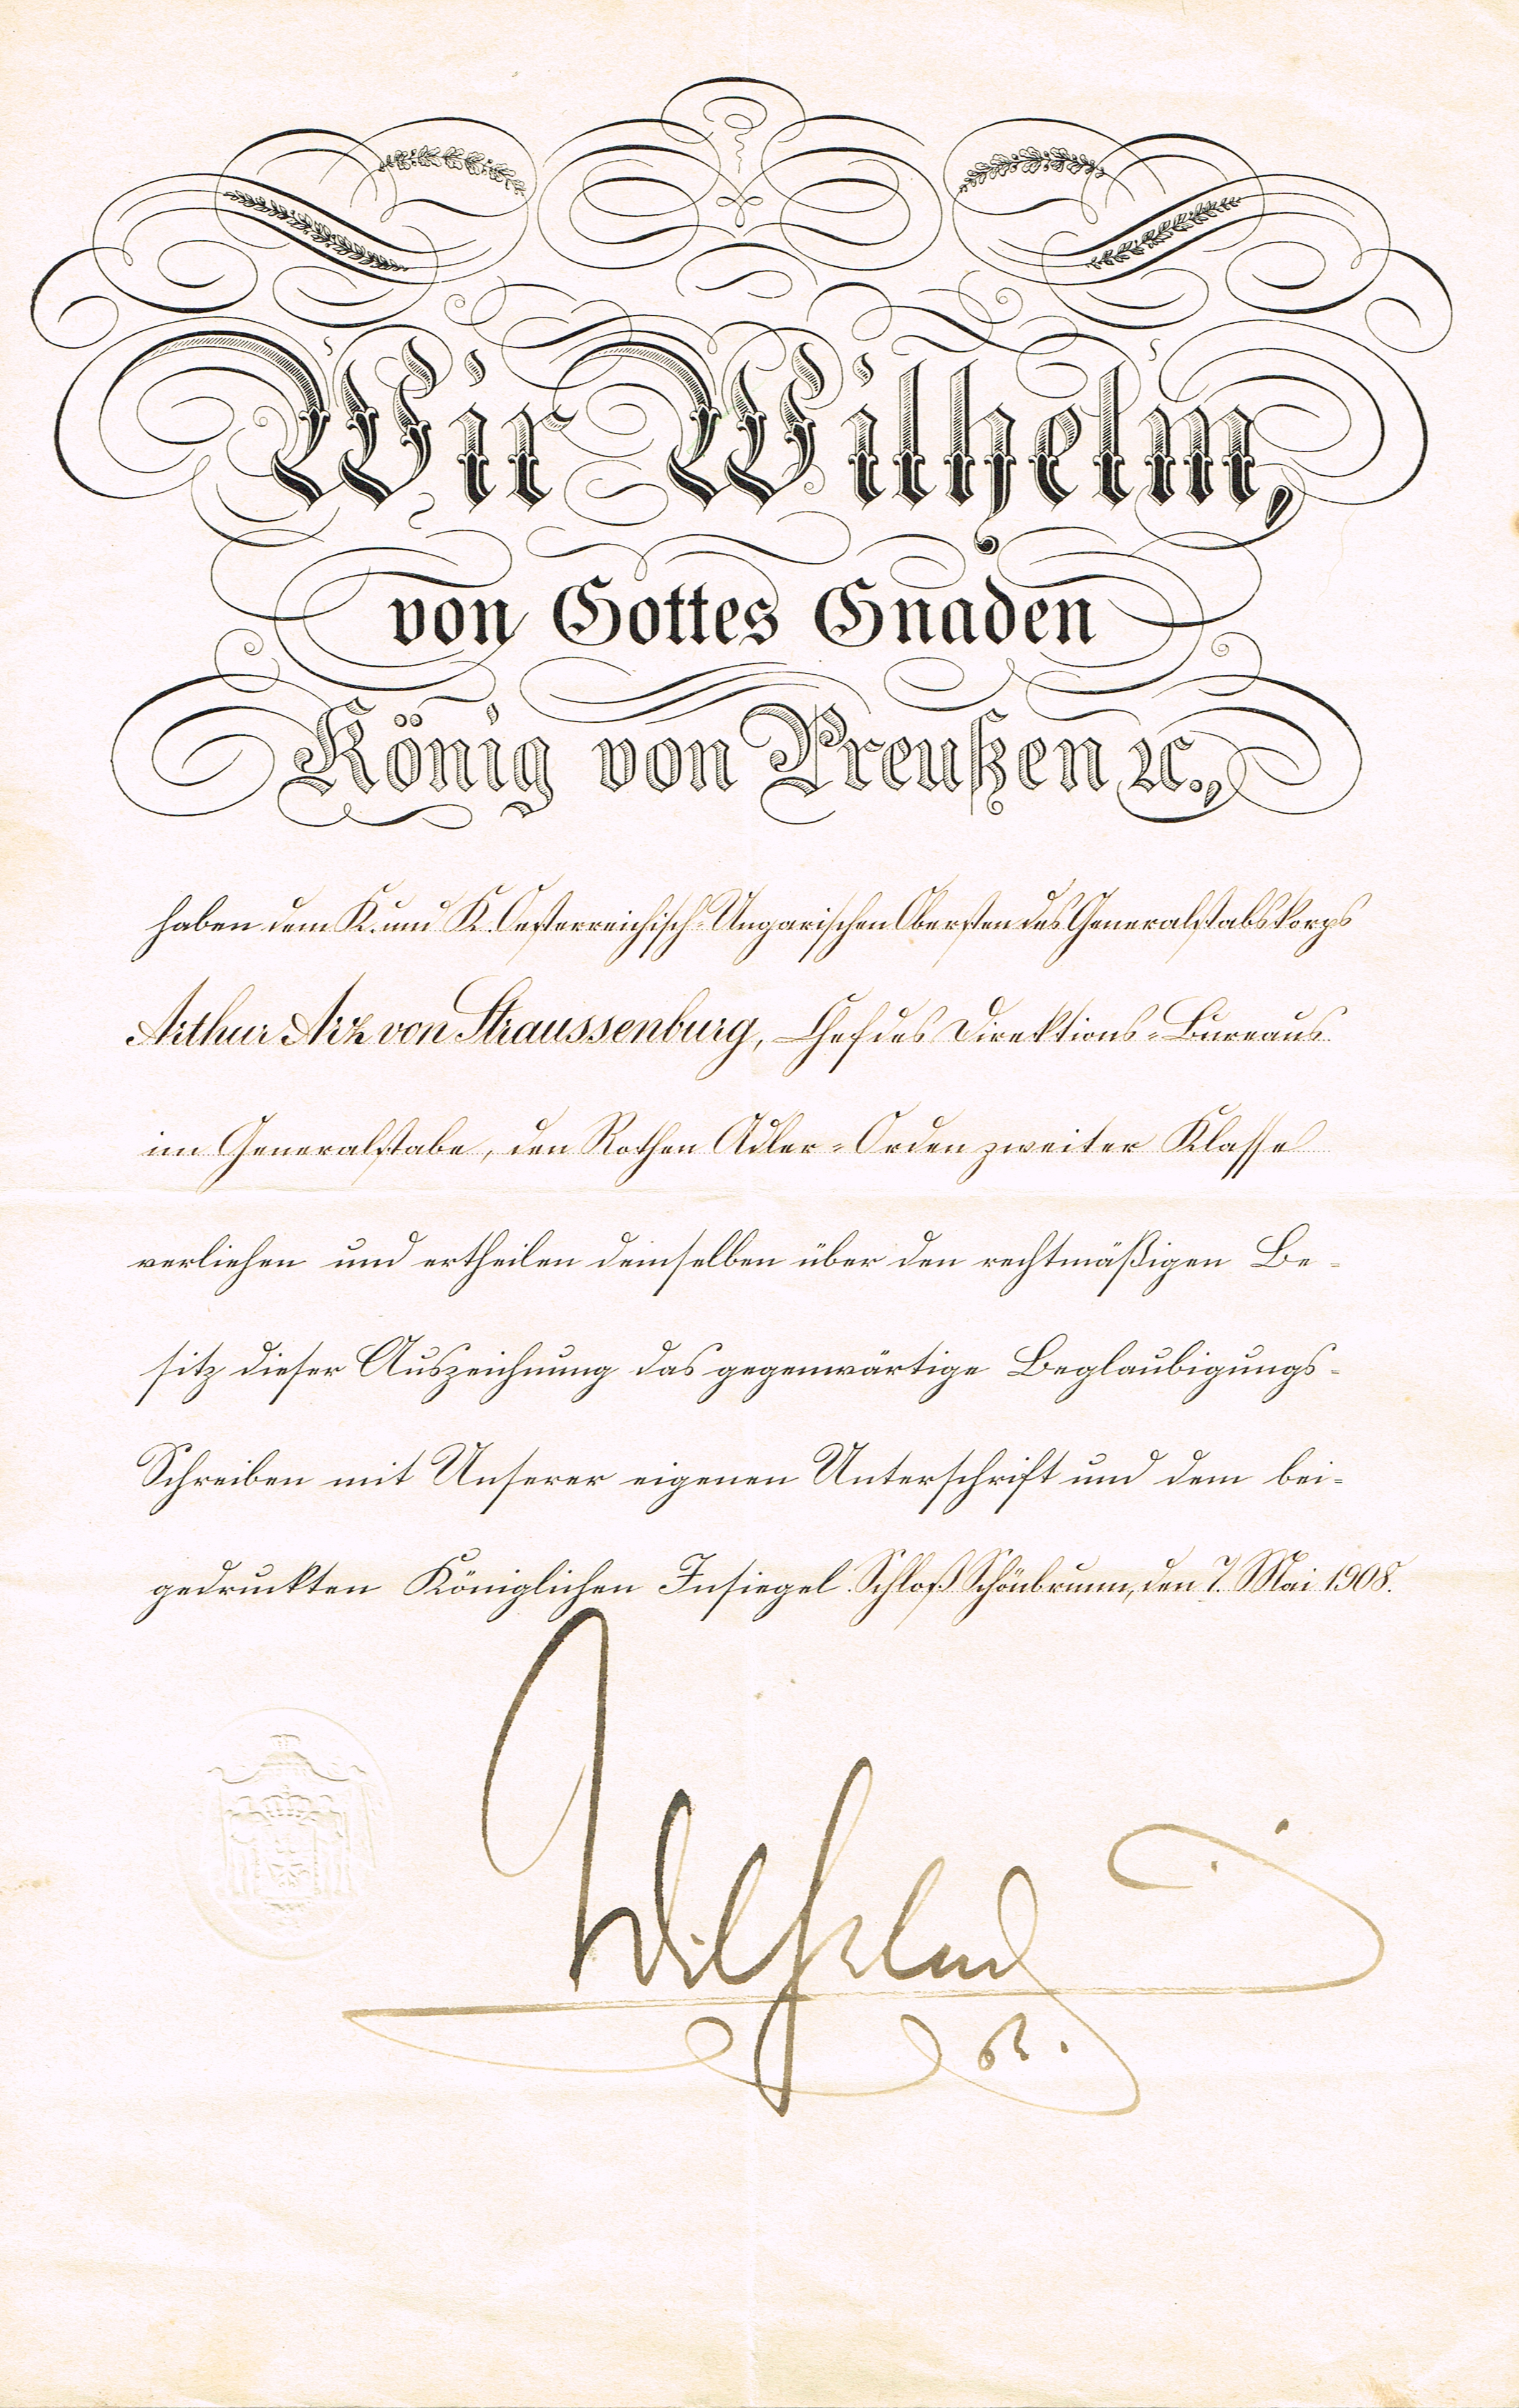 Wir Wilhelm,
von Gottes Gnaden
König von Preußen ꝛc.,
haben dem K. und K. Oesterreichisch-Ungarischen Obersten des Generalstabskorps
Arthur Arz von Straussenburg, Chef des Direktions-Bureaus
im Generalstabe, den Rothen Adler-Orden zweiter Klasse
verliehen und ertheilen demselben über den rechtmäßigen Be-
sitz dieser Auszeichnung das gegenwärtige Beglaubigungs-
Schreiben mit Unserer eigenen Unterschrift und dem bei-
gedruckten Königlichen Insiegel. Schloß Schönbrunn, den 7. Mai 1908.
Wilhelm
R.